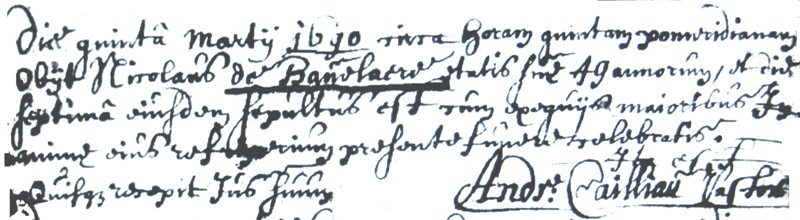 Die quinta Martij 1690 circa horam quintam pomeridianam
Obijt Nicolaus de Banelaere etatis sue 49 annorum, et die
septima eiusdem sepultus est cum exequijs maioribus In
animae eius refrigerium presente funere celebratis.
recepit Jus suum
Andr. Cailliau Pastor